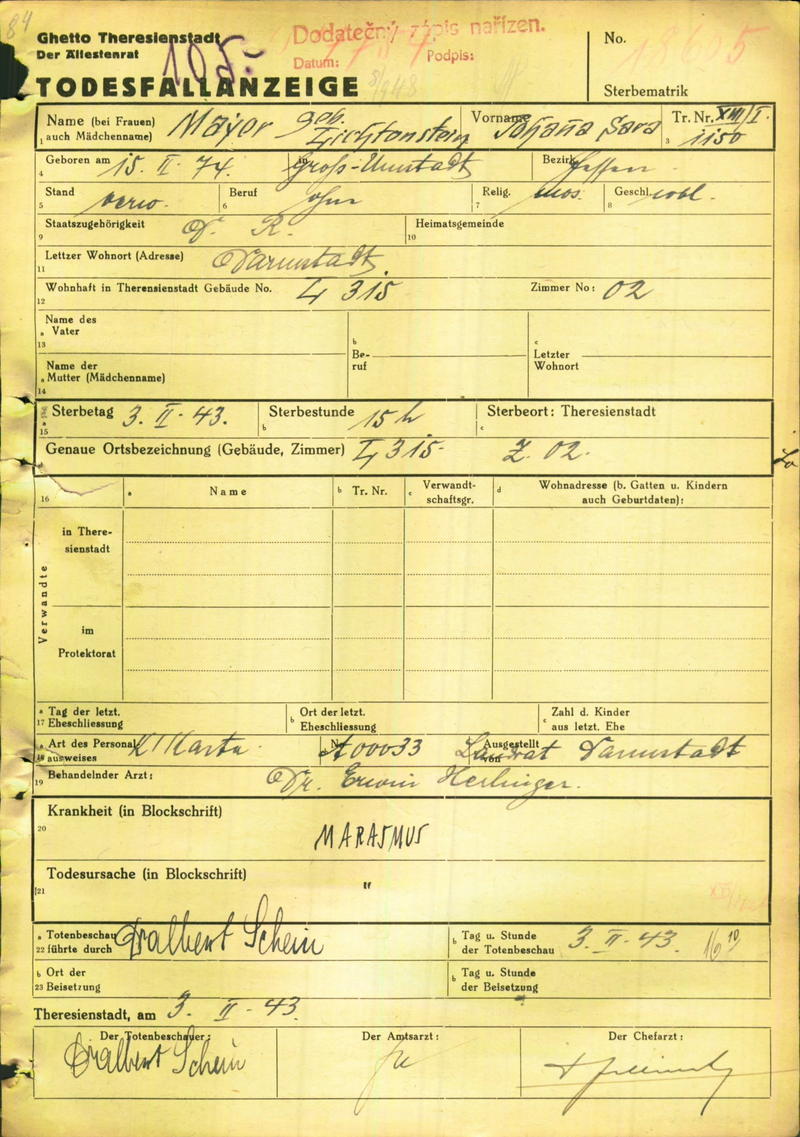 84
Ghetto Theresienstadt
Der Ältestenrat
105.-
Dodatečný zápis nařízen.
Datum: Podpis:
No. 18605
Sterbematrik
TODESFALLANZEIGE
Name (bei Frauen) auch Mädchenname) Major geb. Lichtenstein Vorname Johana Sara Tr. Nr. XIII/I. 1150
1 3
Geboren am 15. II. 74. in Groß-Umstadt Bezirk Hessen
4
Stand verw. Beruf ohne Relig. mos. Geschl. weibl.
5 6 7 8
Staatszugehörigkeit D. R. Heimatsgemeinde
9 10
Lettzer Wohnort (Adresse) Darmstadt
11
Wohnhaft in Therensienstadt Gebäude No. L 315 Zimmer No: 02
12
Name des
a Vater
13
b Be-
ruf
c Letzter
Wohnort
Name der
a Mutter (Mädchenname)
14
Sterbetag 3. II. 43. Sterbestunde 15 h. Sterbeort: Theresienstadt
15 b c
Genaue Ortsbezeichnung (Gebäude, Zimmer) L 315- Z. 02.
16 a Name b Tr. Nr. c Verwandt-
schaftsgr. d Wohnadresse (b. Gatten u. Kindern
auch Geburtdaten):
Verwandte
in There-
sienstadt
im
Protektorat
a Tag der letzt.
17 Eheschliessung
b Ort der letzt.
Eheschliessung
c Zahl d. Kinder
aus letzt. Ehe
a Art des Personal
18 ausweises K'Karte Nr. A00033 Ausgestellt von Landrat Darmstadt
19 Behandelnder Arzt: Dr. Erwin Herlinger.
Krankheit (in Blockschrift)
20 MARASMUS
Todesursache (in Blockschrift)
21 "
a Totenbeschau
22 führte durch Dr Albert Schein
b Tag u. Stunde
der Totenbeschau 3. II. 43. 16 10
b Ort der
23 Beisetzung
b Tag u. Stunde
der Beisetzung
Theresienstadt, am 3. II - 43.
Der Totenbeschauer: Der Amtsarzt: Der Chefarzt:
Dr Albert Schein